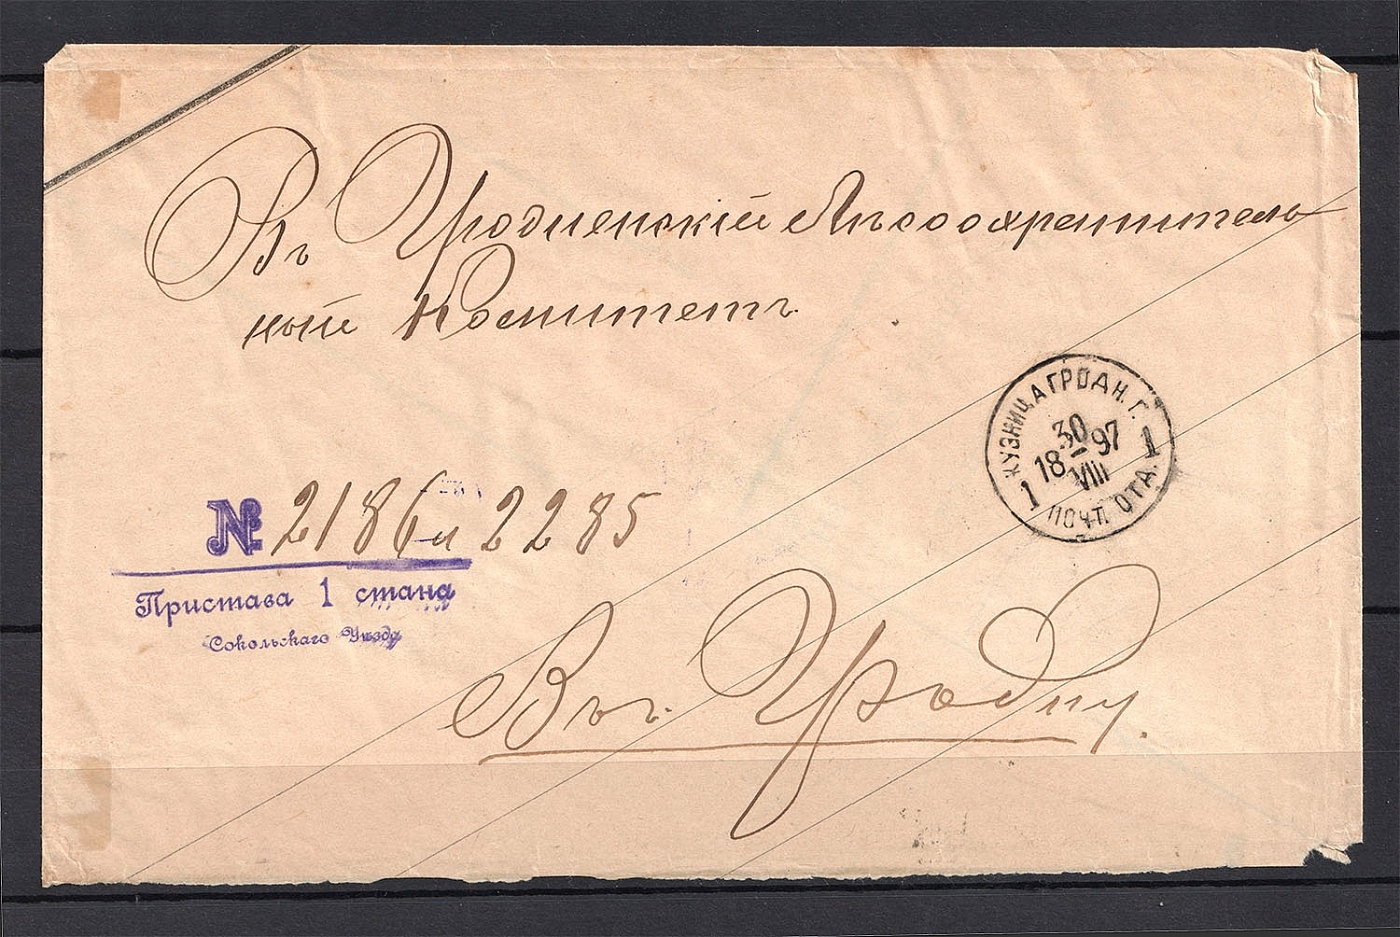 Въ Гродненскій Лѣсоохранитель
ный Комитетъ
КУЗНИЦА ГРОДН. Г.
30
18-97
VIII
1 1
ПОЧТ. ОТД.
№ 2186 и 2285
Пристава 1 стана
Сокольскаго Уѣзда
Въ Гродну.